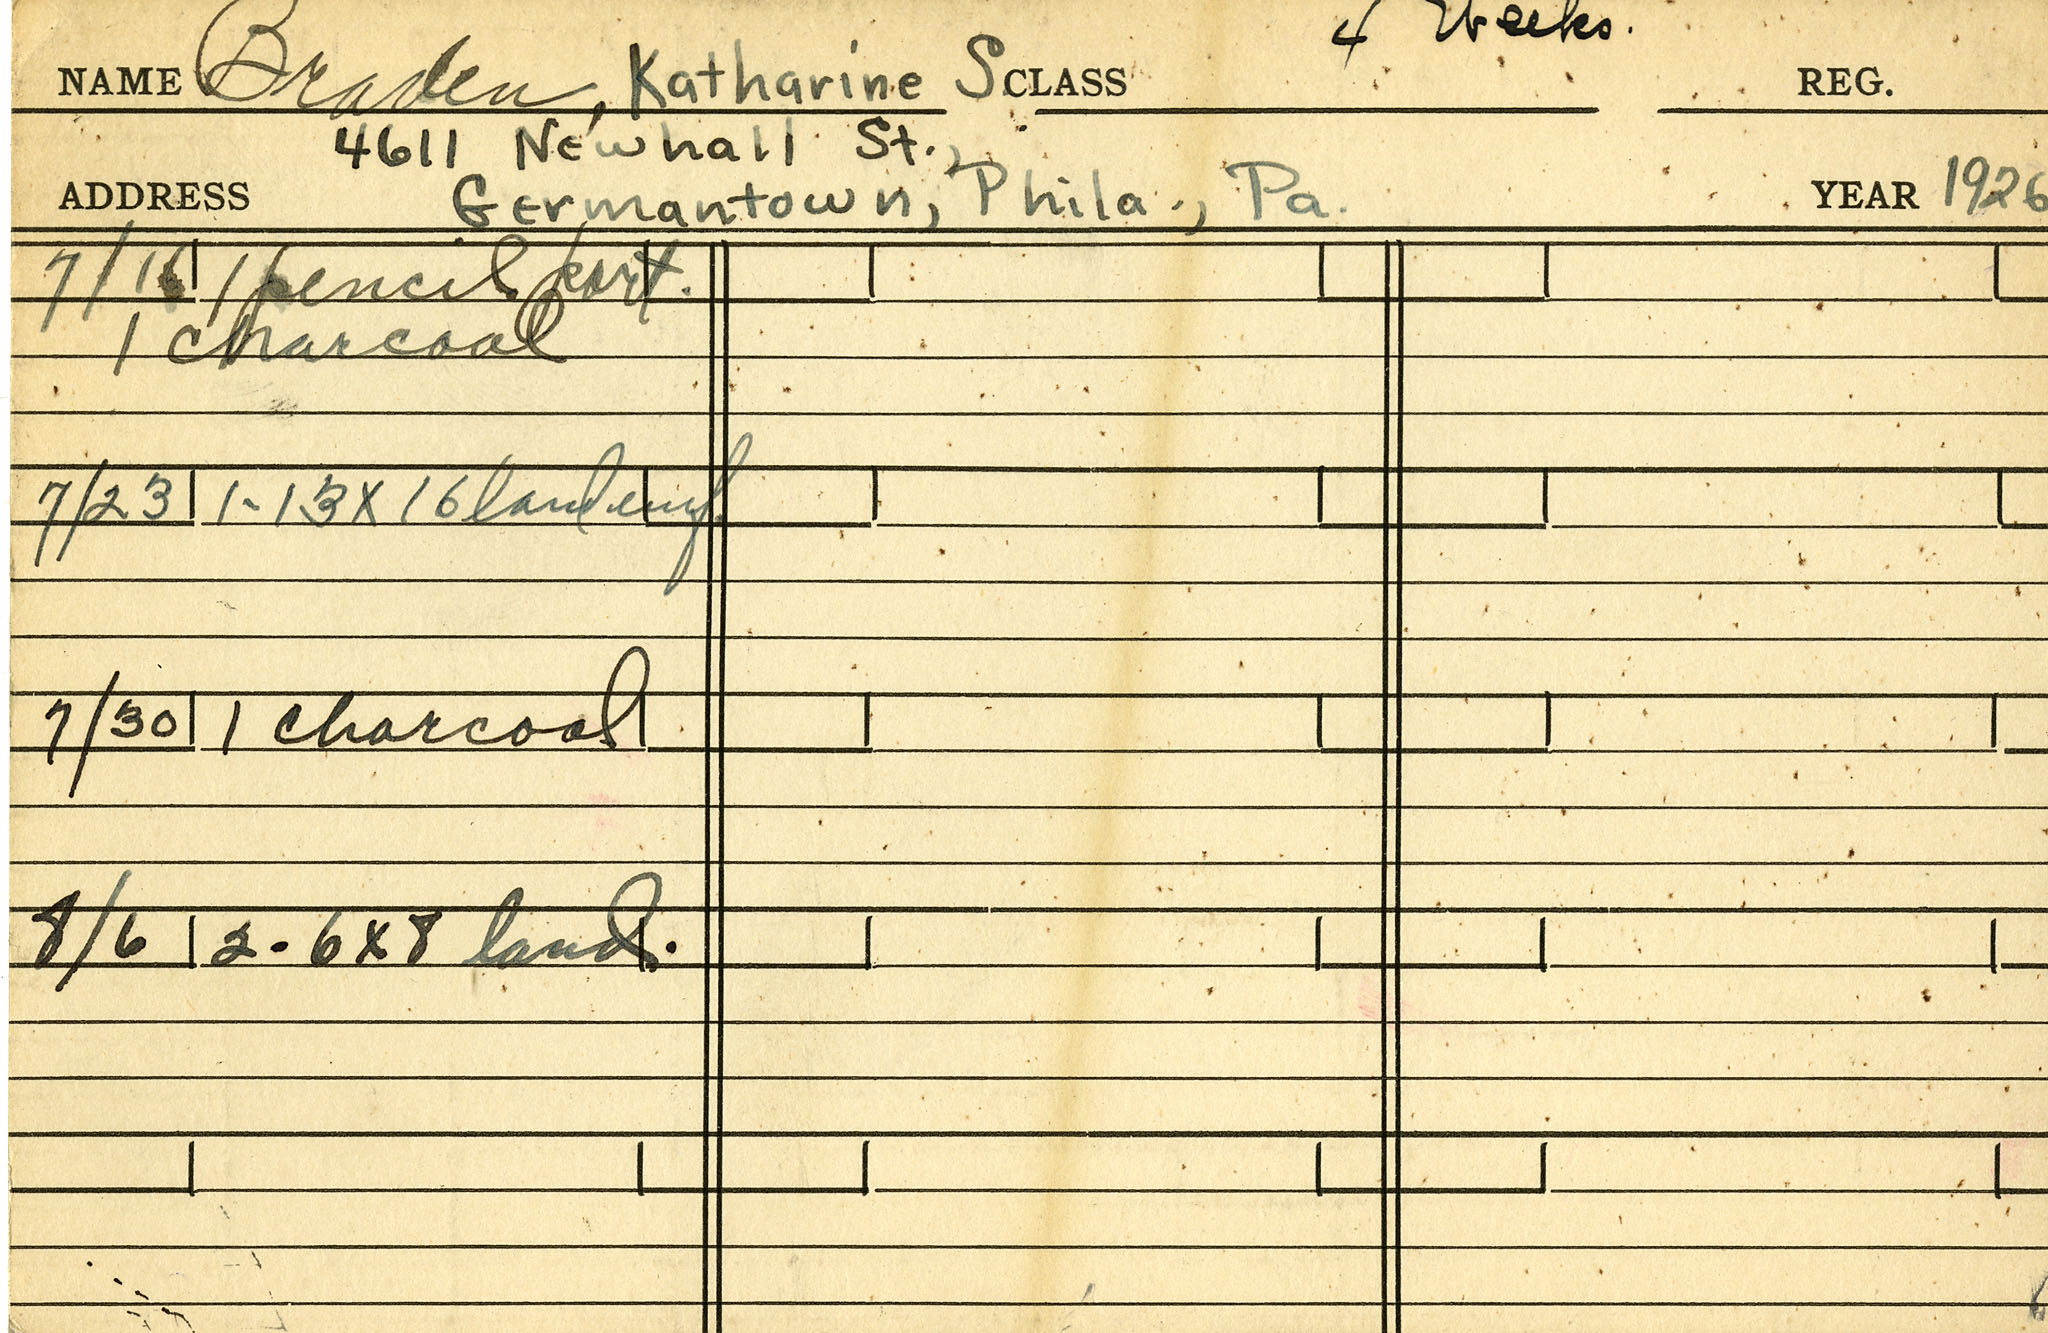 4 Weeks.
NAME Braden, Katharine S. CLASS REG.
4611 Newhall St.,
ADDRESS Germantown, Phila., Pa. YEAR 1926
7/16 1 pencil port.
1 charcoal
7/23 1-13X16 land
7/30 1 charcoal
8/6 2-6X8 land.